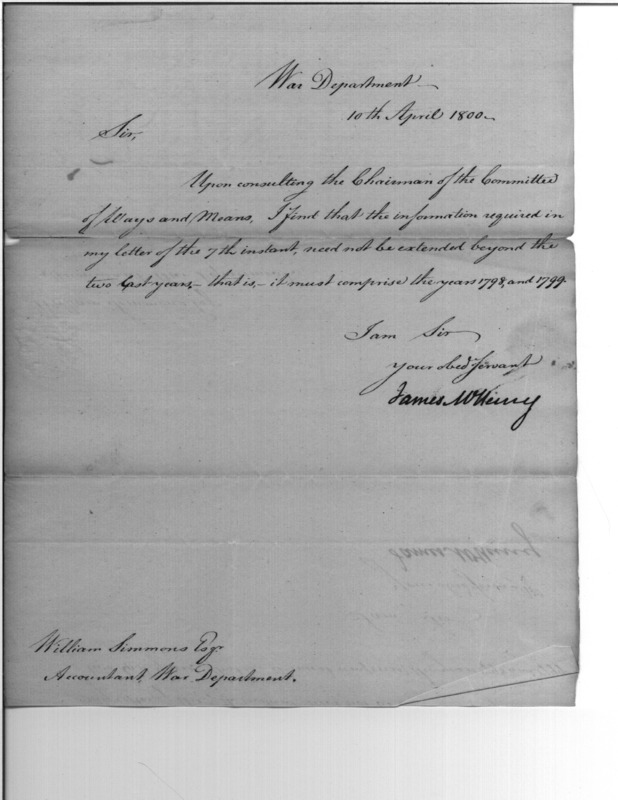 War Department
10th April 1800.
Sir,
Upon consulting the Chairman of the Committee
of Ways and Means, I find that the information required in
my letter of the 7th instant, need not be extended beyond the
two last years,- that is,- it must comprise the years 1798, and 1799.
I am Sir
your obed. Servant
James McHenry
William Simmons Esqr.
Accountant, War Department.